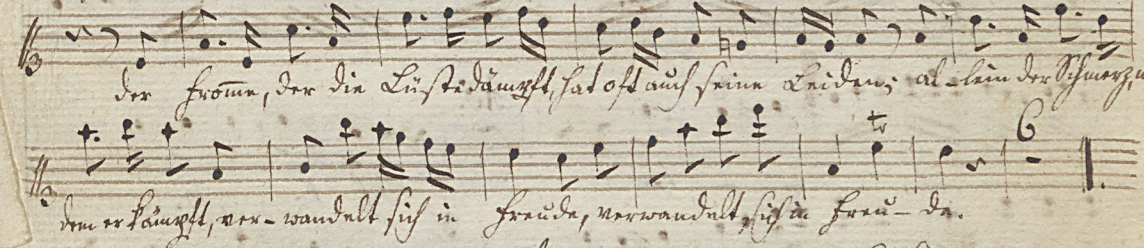 der from̄e, der die Lüste dämpft, hat oft auch seine Leiden; al-lein der Schmerz, mit
dem er kämpft, ver-wandelt sich in Freude, verwandelt sich in Freu-de.
6